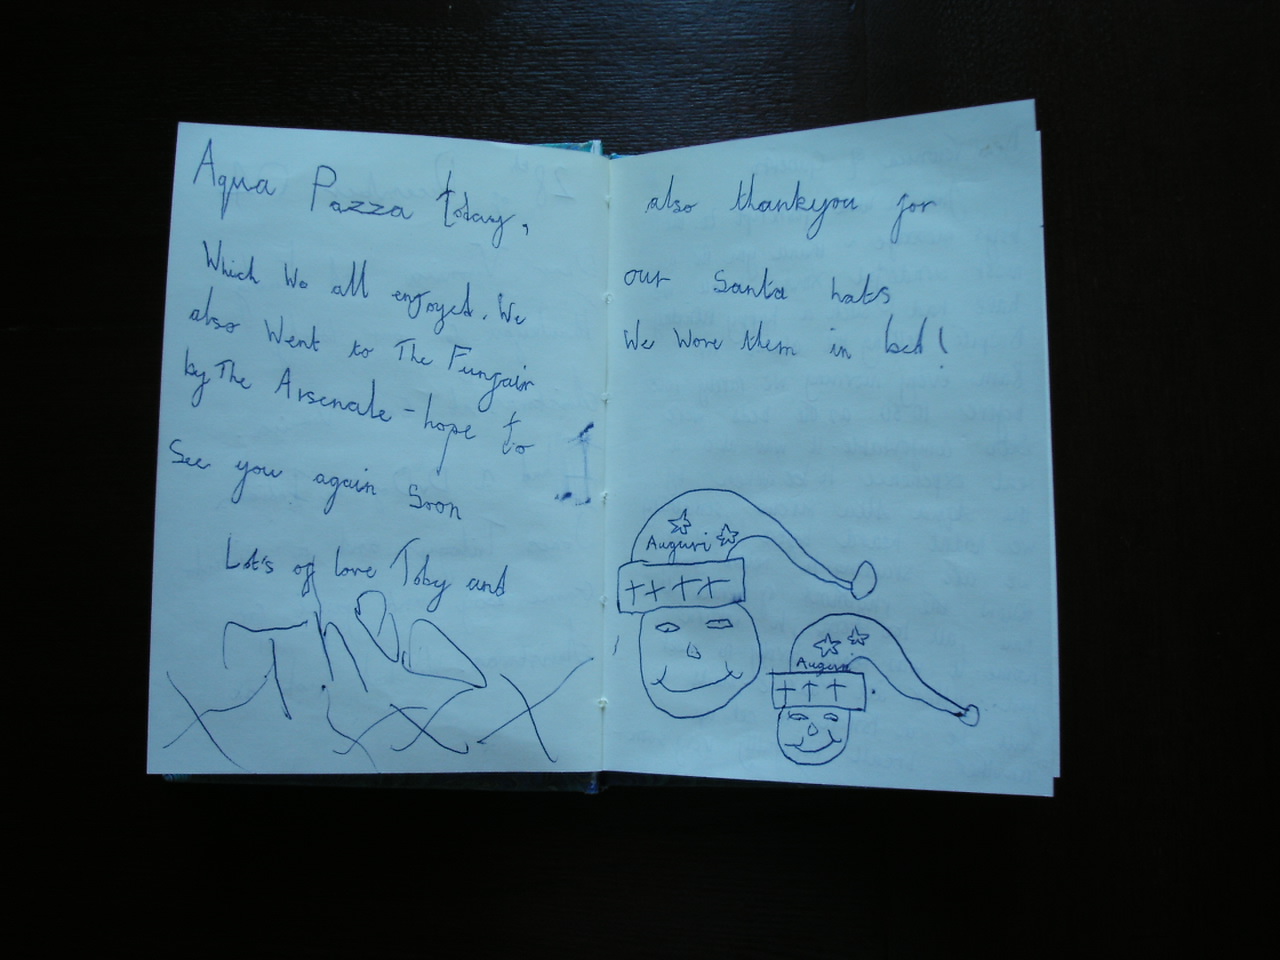 Aqua Pazza today,
Which We all enjoyed. We
also Went to The Funfair
by The Arsenale - hope to
See you again Soon
Lot's of love Toby and
Theo
x x x x
also thankyou for
our Santa hats
We Wore them in bed!
Auguri
Auguri